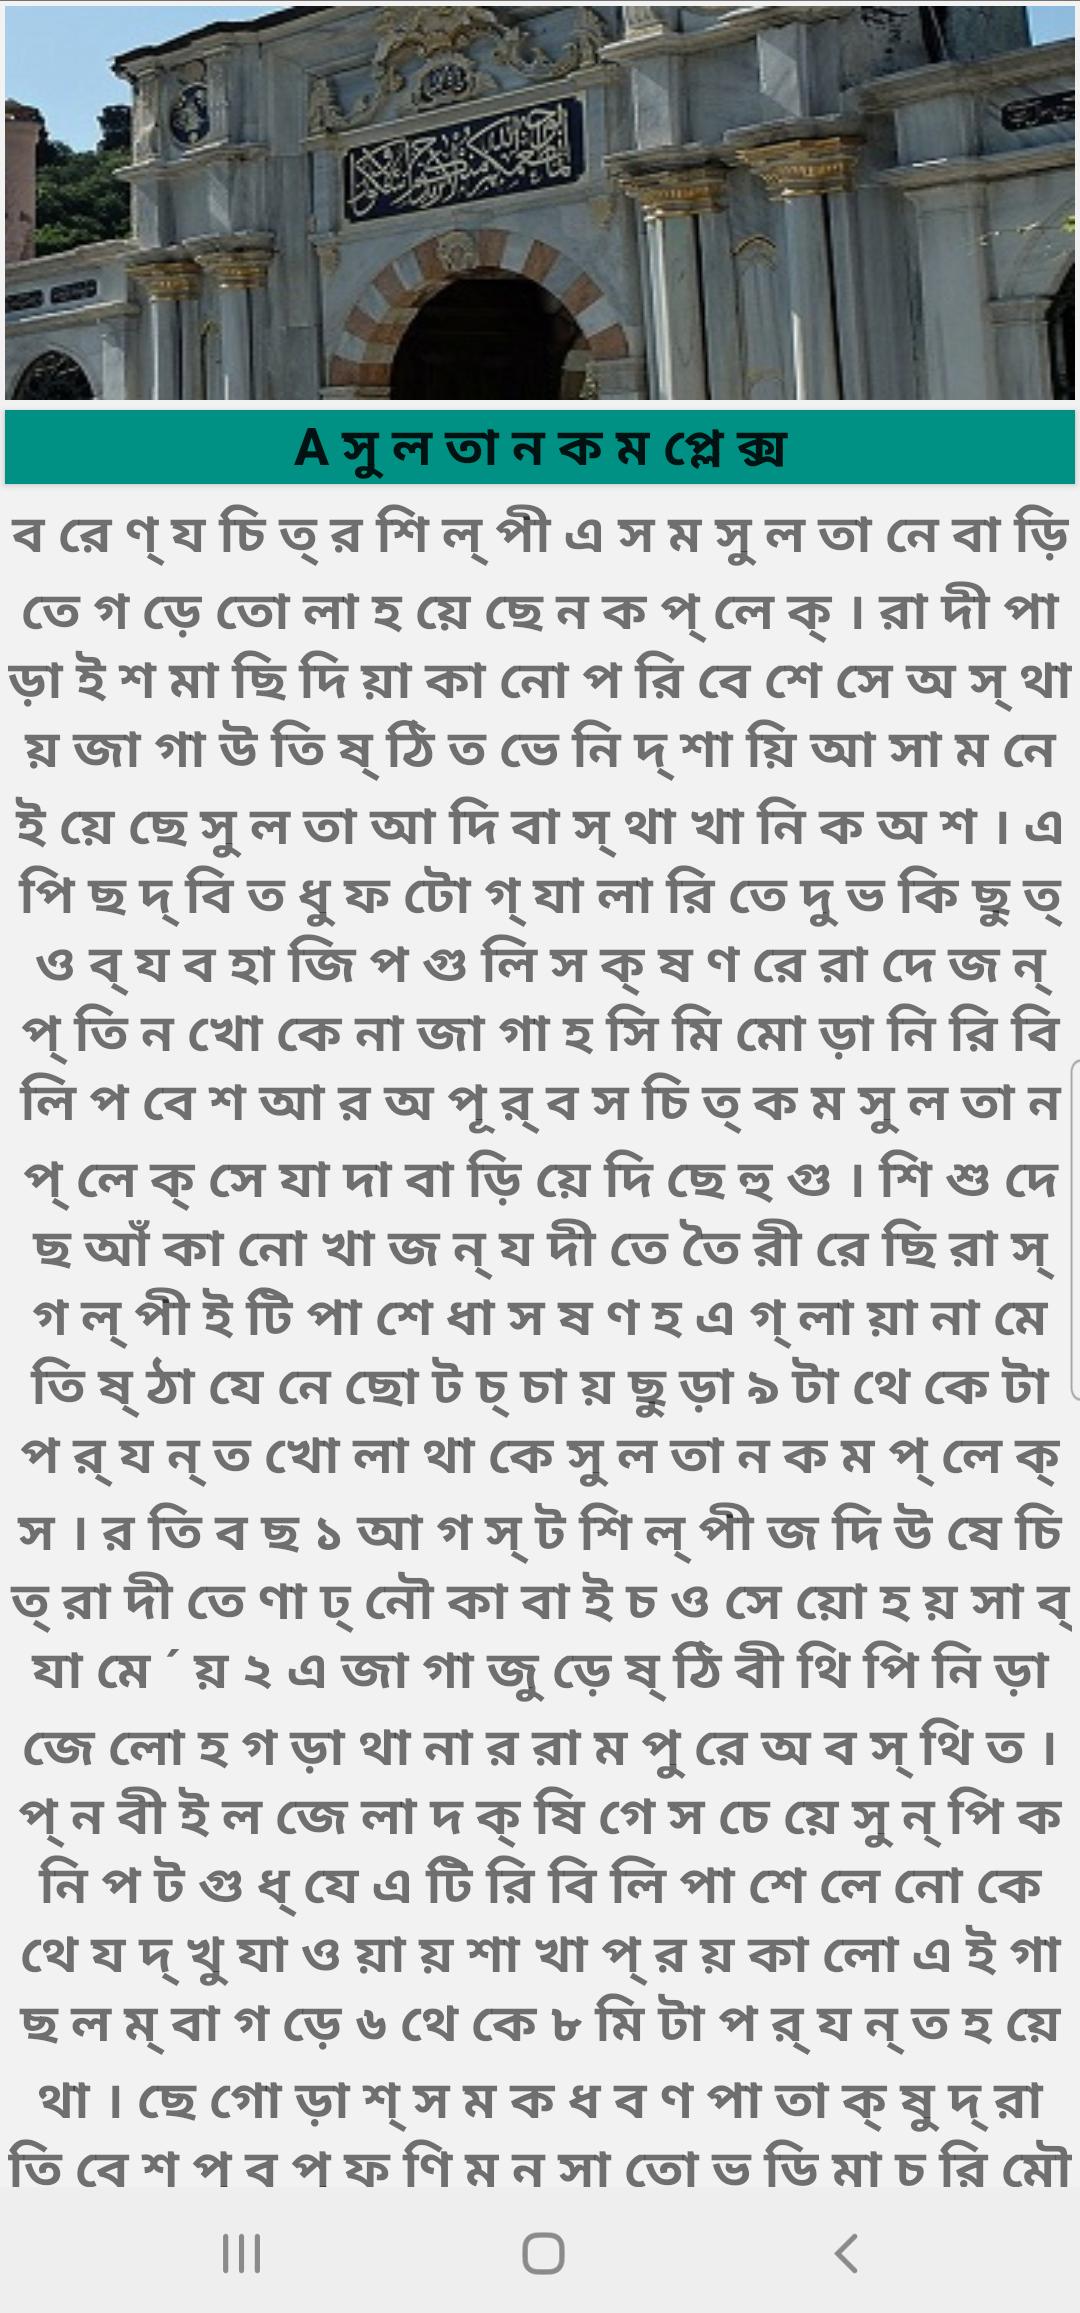 A সু ল তা ন ক ম প্লে ক্স
ব রে ণ্ য চি ত্ র শি ল্ পী এ স ম সু ল তা নে বা ড়ি
তে গ ড়ে তো লা হ য়ে ছে ন ক প্ লে ক্ । রা দী পা
ড়া ই শ মা ছি দি য়া কা নো প রি বে শে সে অ স্ থা
য় জা গা উ তি ষ্ ঠি ত ভে নি দ্ শা য়ি আ সা ম নে
ই য়ে ছে সু ল তা আ দি বা স্ থা খা নি ক অ শ । এ
পি ছ দ্ বি ত ধু ফ টো গ্ যা লা রি তে দু ভ কি ছু ত্
ও ব্ য ব হা জি প গু লি স ক্ ষ ণ রে রা দে জ ন্
প্ তি ন খো কে না জা গা হ সি মি মো ড়া নি রি বি
লি প বে শ আ র অ পূ র্ ব স চি ত্ ক ম সু ল তা ন
প্ লে ক্ সে যা দা বা ড়ি য়ে দি ছে হু গু । শি শু দে
ছ আঁ কা নো খা জ ন্ য দী তে তৈ রী রে ছি রা স্
গ ল্ পী ই টি পা শে ধা স ষ ণ হ এ গ্ লা য়া না মে
তি ষ্ ঠা যে নে ছো ট চ্ চা য় ছু ড়া ৯ টা থে কে টা
প র্ য ন্ ত খো লা থা কে সু ল তা ন ক ম প্ লে ক্
স । র তি ব ছ ১ আ গ স্ ট শি ল্ পী জ দি উ ষে চি
ত্ রা দী তে ণা ঢ্ নৌ কা বা ই চ ও সে য়ো হ য় সা ব্
যা মে ´ য় ২ এ জা গা জু ড়ে ষ্ ঠি বী থি পি নি ড়া
জে লো হ গ ড়া থা না র রা ম পু রে অ ব স্ থি ত ।
প্ ন বী ই ল জে লা দ ক্ ষি গে স চে য়ে সু ন্ পি ক
নি প ট গু ধ্ যে এ টি রি বি লি পা শে লে নো কে
থে য দ্ খু যা ও য়া য় শা খা প্ র য় কা লো এ ই গা
ছ ল ম্ বা গ ড়ে ৬ থে কে ৮ মি টা প র্ য ন্ ত হ য়ে
থা । ছে গো ড়া শ্ স ম ক ধ ব ণ পা তা ক্ ষু দ্ রা
তি বে শ প ব প ফ ণি ম ন সা তো ভ ডি মা চ রি মৌ